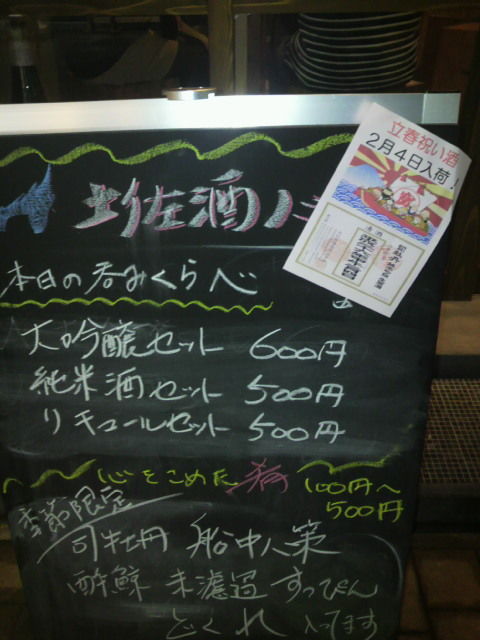 立春祝い酒
2月4日入荷!
土佐酒バ
本日の呑みくらべ
大吟醸セット 600円
純米酒セット 500円
リキュールセット 500円
心をこめた 肴 100円〜
500円
季節限定
司牡丹 船中八策
酔鯨 未濾過 すっぴん
どくれ 入ってます